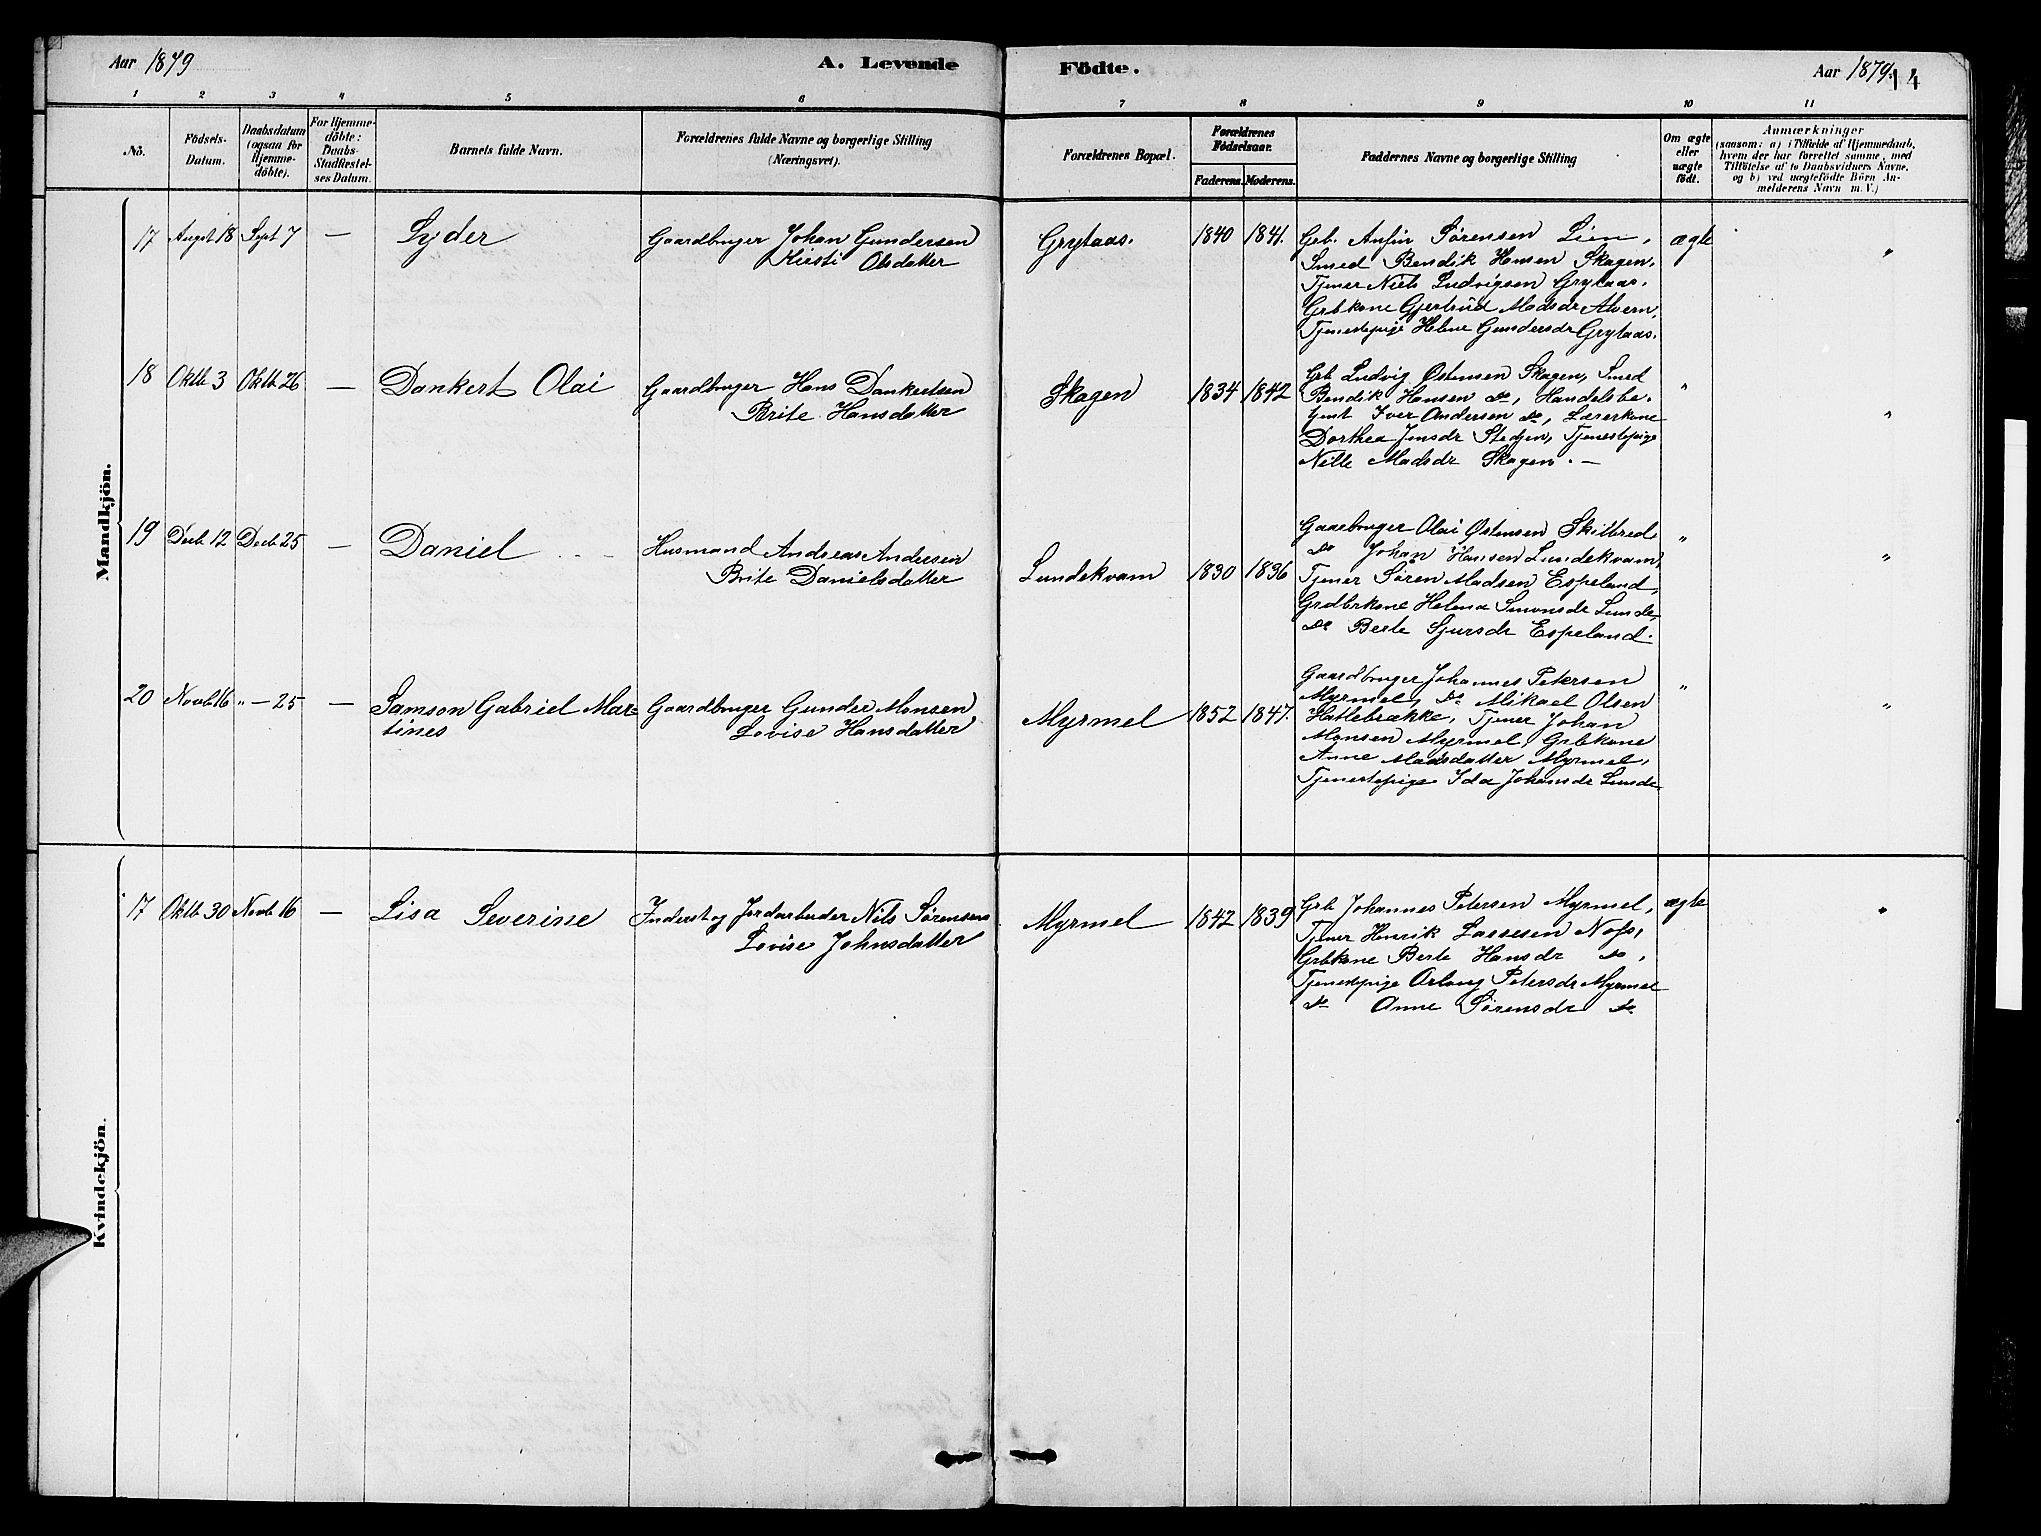 Aar 1879
A. Levende
Födte.
Aar 1879.
14
1 2 3 4 5 6 7 8 9 10 11
No.
Födsels-
Datum.
Daabsdatum
(ogsaa for
Hjemme-
döbte).
For Hjemme-
döbte:
Daabs-
Stadfæstel-
ses Datum.
Barnets fulde Navn.
Forældrenes fulde Navne og borgerlige Stilling
(Næringsvei).
Forældrenes Bopæl.
Forældrenes
Födselsaar.
Faderens. Moderens.
Faddernes Navne og borgerlige Stilling
Om ægte
eller
uægte
födt.
Anmærkninger
(saasom: a) i Tilfælde af Hjemmedaab,
hvem der har forrettet samme, med
Tilföielse af to Daabsvidners Navne,
og b) ved uægtefödte Börn An-
melderens Navn m. V.)
Mandkjön.
17 Augst 18 Sept 7 — Lyder
Gaardbruger Johan Gundersen
Kirsti Olsdatter
Grytaas. 1840 1841.
Grb. Anfin Sørensen Lien,
Smed Bendik Hansen Skagen,
Tjener Niels Ludvigsen Grytaas.
Grbkone Gjertrud Madsdr Alvern,
Tjenestepige Helene Gundersdr Grytaas.
ægte "
18 Oktb 3 Oktb 26 — Dankert Olai
Gaardbruger Hans Dankertsen
Brite Hansdatter
Skagen 1834 1842
Grb Ludvig Østensen Skagen, Smed
Bendik Hansen do, Handelsbe-
tjent Iver Andersen do, Lærerkone
Dorthea Jensdr Stedjen, Tjenestepige
Nille Madsdr Skagen. —
" "
19 Decb 12 Decb 25 — Daniel
Husmand Andreas Andersen
Brite Danielsdatter
Lundekvam 1830 1836
Gaarbruger Olai Østensen Skilbred,
do Johan Hansen Lundekvam,
Tjener Søren Madsen Espeland,
Grdbrkone Helena Simonsdr Lunde,
do Berte Sjursdr Espeland.
" "
20 Novb 16 " — 25 — Samson Gabriel Mar-
tines
Gaardbruger Gunder Monsen
Lovise Hansdatter
Myrmel 1852 1847.
Gaardbruger Johannes Petersen
Myrmel, do Mikael Olsen
Hatlebrække, Tjener Johan
Monsen Myrmel, Grbkone
Anne Madsdatter Myrmel,
Tjenestepige Ida Johansdr Lunde
" "
Kvindekjön.
17 Oktb 30 Novb 16 — Lisa Severine
Inderst og Jordarbeider Nils Sørensen
Lovise Johnsdatter
Myrmel 1842 1839
Grb Johannes Petersen Myrmel,
Tjener Henrik Lassesen
Grbkone Berte Hansdr do,
Tjenestepige Petersdr Myrmel
do Anne Sørensdr do.
ægte "